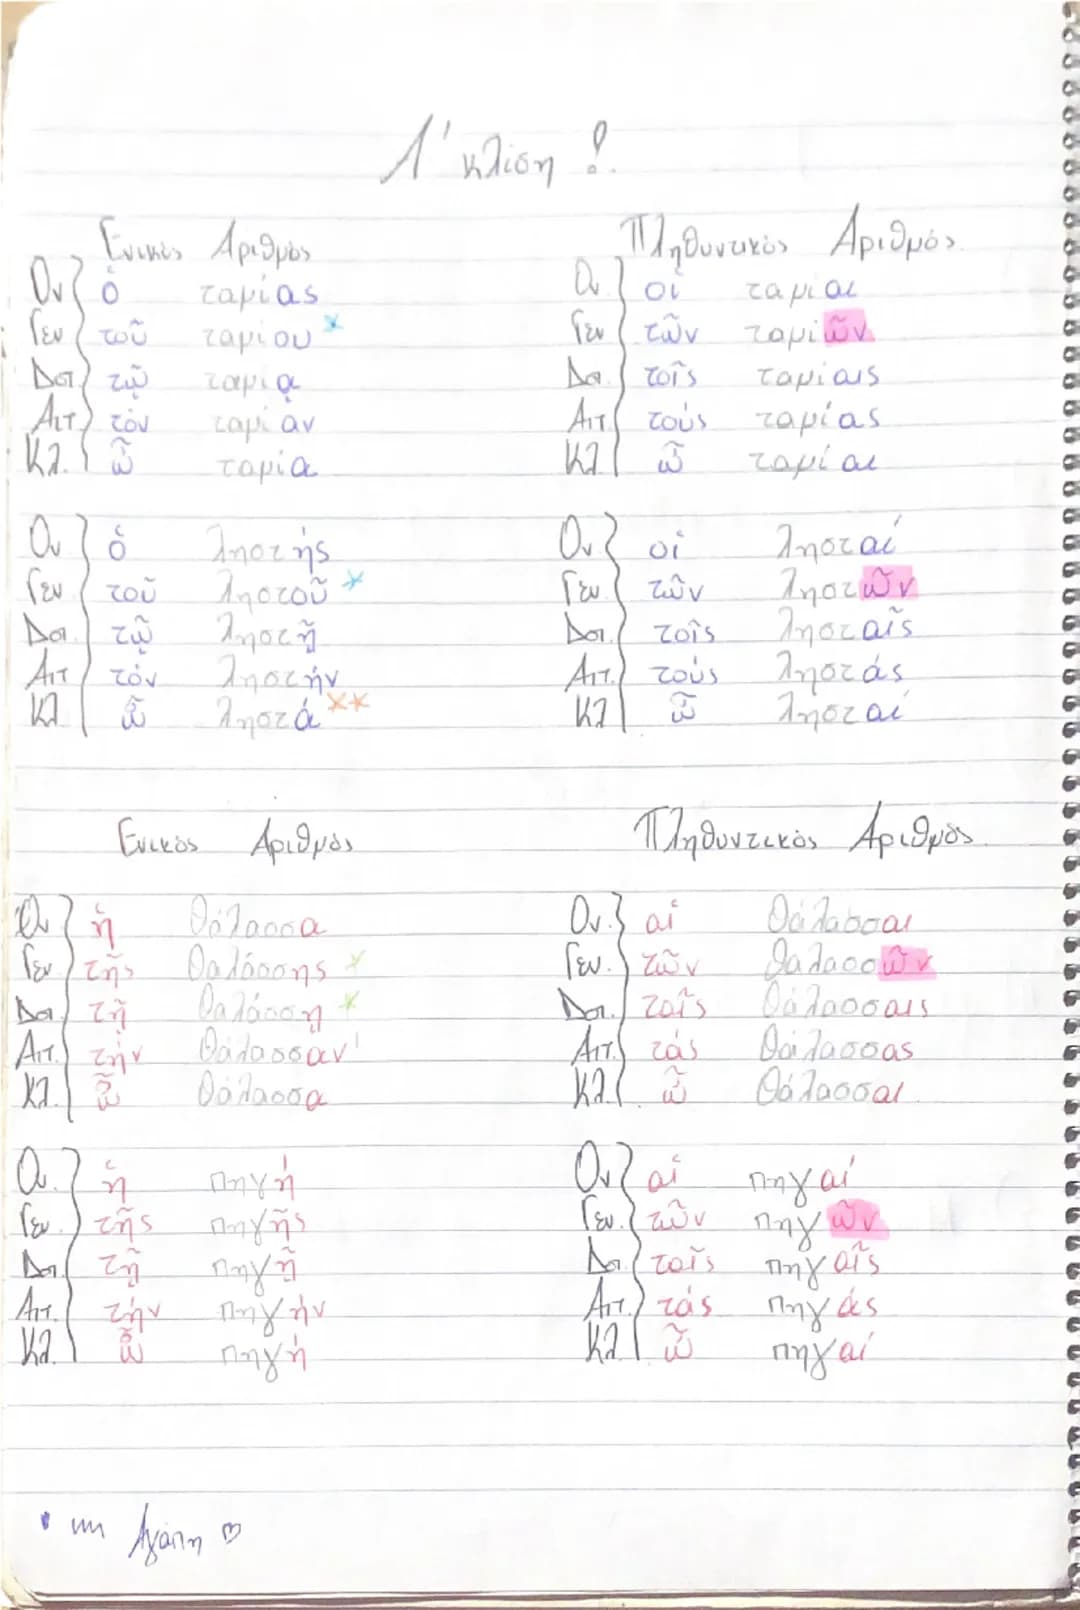 Α' κλίση !
Ενικός Αριθμός Πληθυντικός Αριθμός
Ον ὁ ταμίας Ον οἱ ταμίαι
Γεν τοῦ ταμίου * Γεν τῶν ταμιῶν
Δοτ τῷ ταμίᾳ Δοτ τοῖς ταμίαις
Αιτ τόν ταμίαν Αιτ τούς ταμίας
Κλ. ὦ ταμία Κλ ὦ ταμίαι
Ον ὁ ληστής Ον οἱ λησταί
Γεν τοῦ ληστοῦ * Γεν τῶν ληστῶν
Δοτ. τῷ ληστῇ Δοτ. τοῖς λησταῖς
Αιτ τόν ληστήν Αιτ. τούς ληστάς
Κλ ὦ ληστά ** Κλ ὦ λησταί
Ενικός Αριθμός Πληθυντικός Αριθμός
Ον ἡ θάλασσα Ον. αἱ θάλασσαι
Γεν τῆς θαλάσσης * Γεν. τῶν θαλασσῶν
Δοτ τῇ θαλάσσῃ * Δοτ. ταῖς θάλασσαις
Αιτ. τήν θάλασσαν Αιτ. τάς θάλασσας
Κλ. ὦ θάλασσα Κλ. ὦ θάλασσαι
Ον. ἡ πηγή Ον αἱ πηγαί
Γεν. τῆς πηγῆς Γεν. τῶν πηγῶν
Δοτ. τῇ πηγῇ Δοτ. ταῖς πηγαῖς
Αιτ. τήν πηγήν Αιτ. τάς πηγάς
Κλ. ὦ πηγή Κλ ὦ πηγαί
Αγάπη ♡